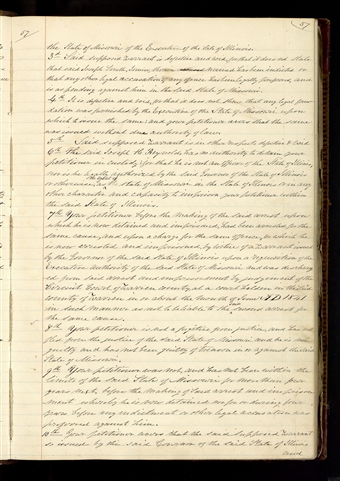 57
57
the State of Missouri of the Executive of the State of Illinois.
3rd Said supposed Warrant is defective and void, for that it does not state
that said Joseph Smith, Junior, has been indicted or
that any other legal accusation of any offence has been legally preferred, and
is so pending against him in the said State of Missouri.
4th It is defective and void, for that it does not show that any legal foun-
dation was furnished by the Executive of the State of Missouri upon
which to issue the same; and your petitioner avers that the same
was issued without due authority of law.
5th Said supposed Warrant is in other respects defective & void.
6th The said Joseph H. Reynolds has no authority to detain your
petitioner in custody, for that he is not an officer of the State of Illinois,
nor is he legally authorized by the said Governor of the State of Illinois
or otherwise, as the agent of the State of Missouri in the State of Illinois or in any
other character and capacity to imprison your petitioner within
the said State of Illinois.
7th Your petitioner before the making of the said arrest upon
which he is now detained and imprisoned, had been arrested for the
same cause, and upon a charge for the same offence, for which he
is now arrested and imprisoned, by virtue of a Warrant issued
by the Governor of the said State of Illinois upon a requisition of the
Executive authority of the said State of Missouri and was dischar-
ged from said arrest and imprisonment by judgment of the
Circuit Court of Warren County, at a court holden in the said
county of Warren in or about the month of June A.D. 1841
in such manner as not to be liable to the second arrest for
the same cause.
8th Your petitioner is not a fugitive from justice, and has not
fled from the justice of the said State of Missouri and he is not
guilty and has not been guilty of treason in or against the said
State of Missouri.
9th Your petitioner was not, and has not been within the
limits of the said State of Missouri for more than four
years next, before the making of said arrest and imprison-
ment whereby he is now detained nor for or during four
years before any indictment or other legal accusation was
preferred against him.
10th Your petitioner avers that the said supposed Warrant
so issued by the said Governor of the said State of Illinois